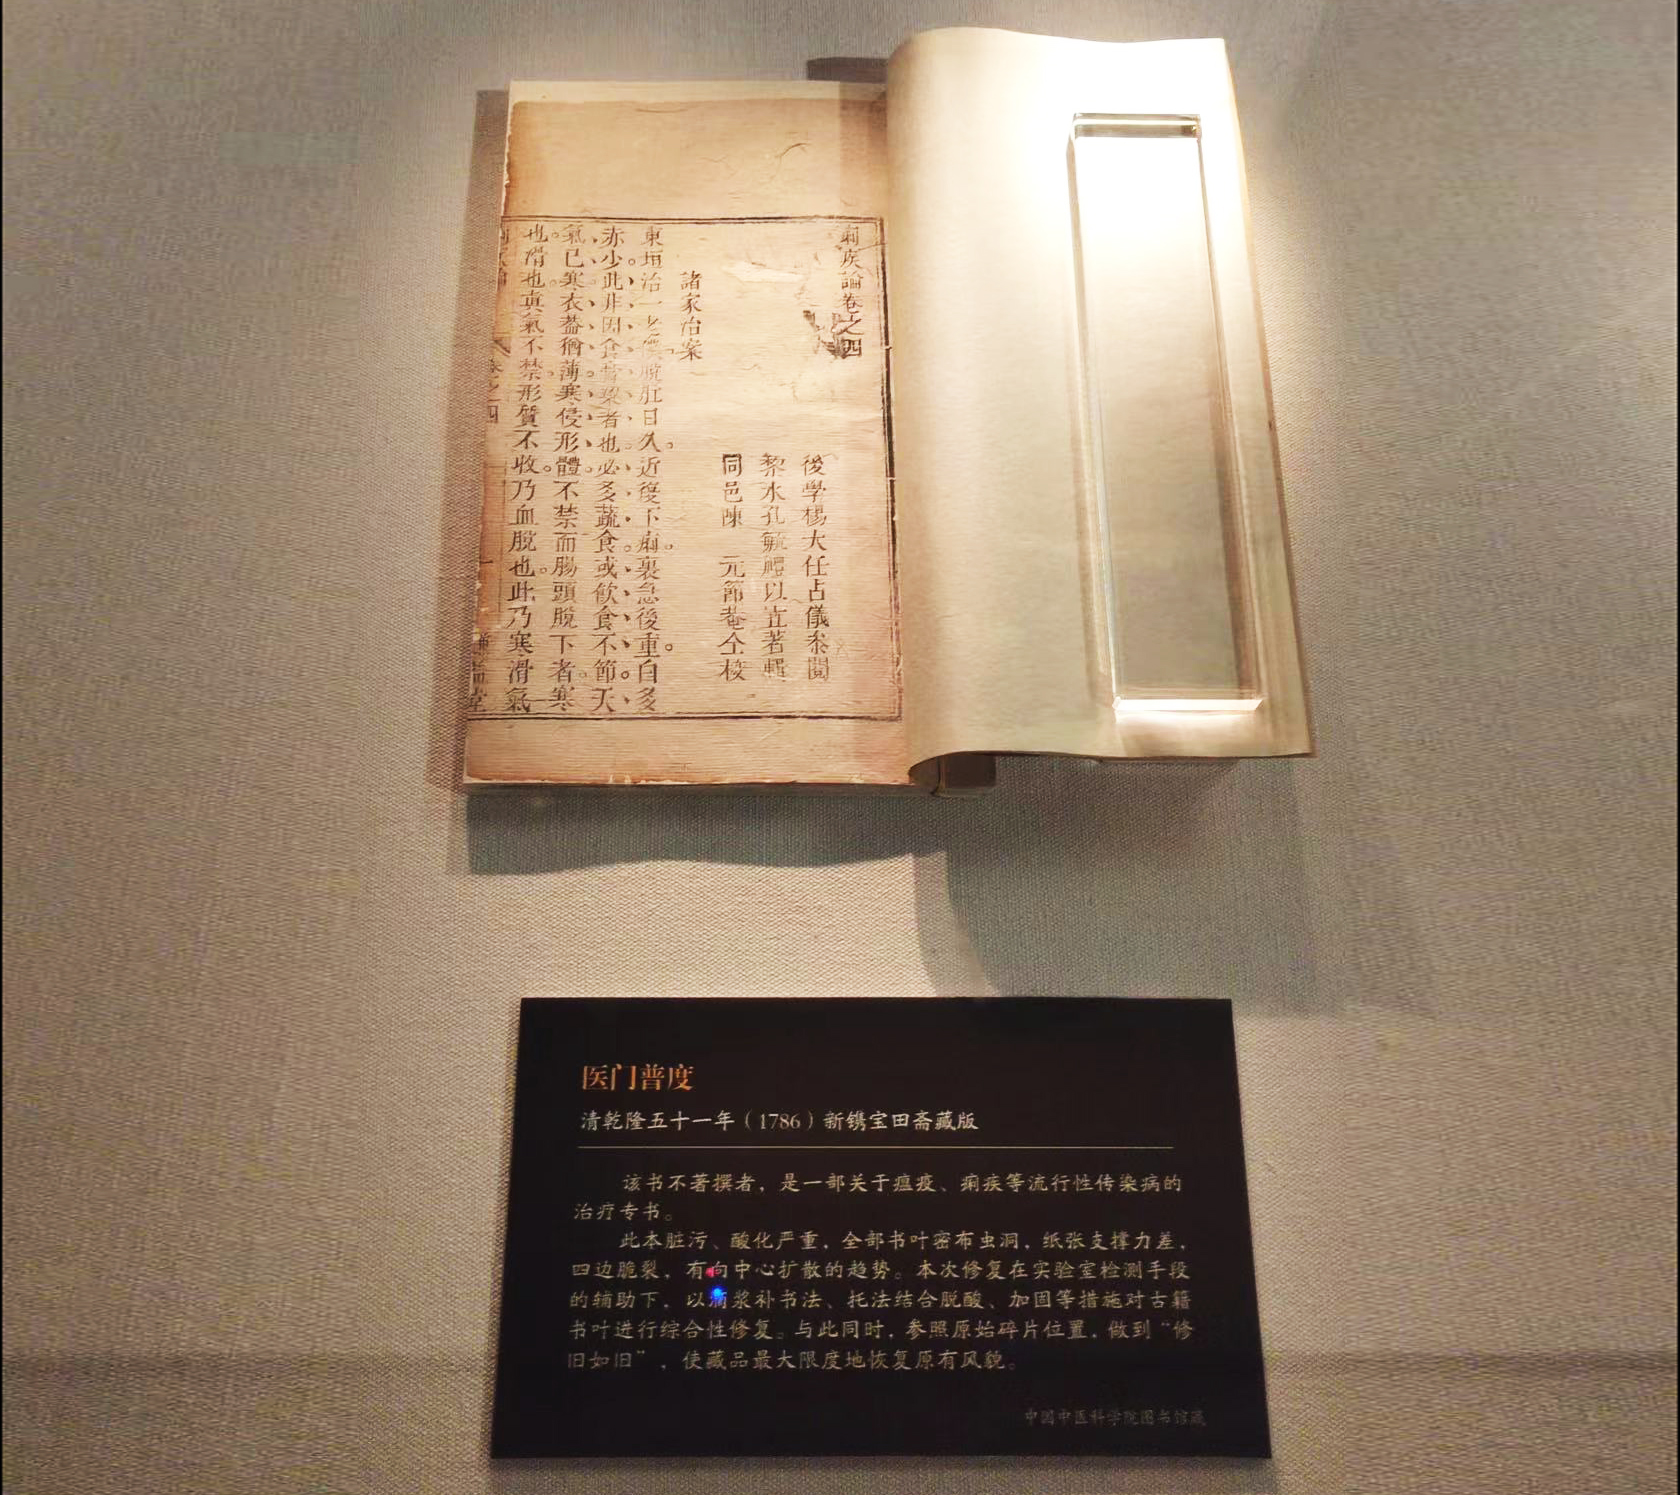 痢疾論卷之四
後學楊大任占儀叅閱
黎水孔毓禮以立著輯
同邑陳　元節菴仝梭
諸家治案
東垣治一老脫肛日久。近復下痢。裏急後重。白多
赤少。此非因食者也。必多蔬食。或飲食不節。天
氣已寒。衣蓋猶薄。寒侵形體。不禁而腸頭脫下者。寒
也。滑也。真氣不禁。形質不收。乃血脫也。此乃寒滑氣
卷之四
医门普度
清乾隆五十一年（1786）新镌宝田斋藏版
该书不著撰者，是一部关于瘟疫、痢疾等流行性传染病的
治疗专书。
此本脏污、酸化严重，全部书叶密布虫洞，纸张支撑力差，
四边脆裂，有向中心扩散的趋势。本次修复在实验室检测手段
的辅助下，以浆补书法、托法结合脱酸、加固等措施对古籍
书叶进行综合性修复。与此同时，参照原始碎片位置，做到“修
旧如旧”，使藏品最大限度地恢复原有风貌。
中国中医科学院图书馆藏